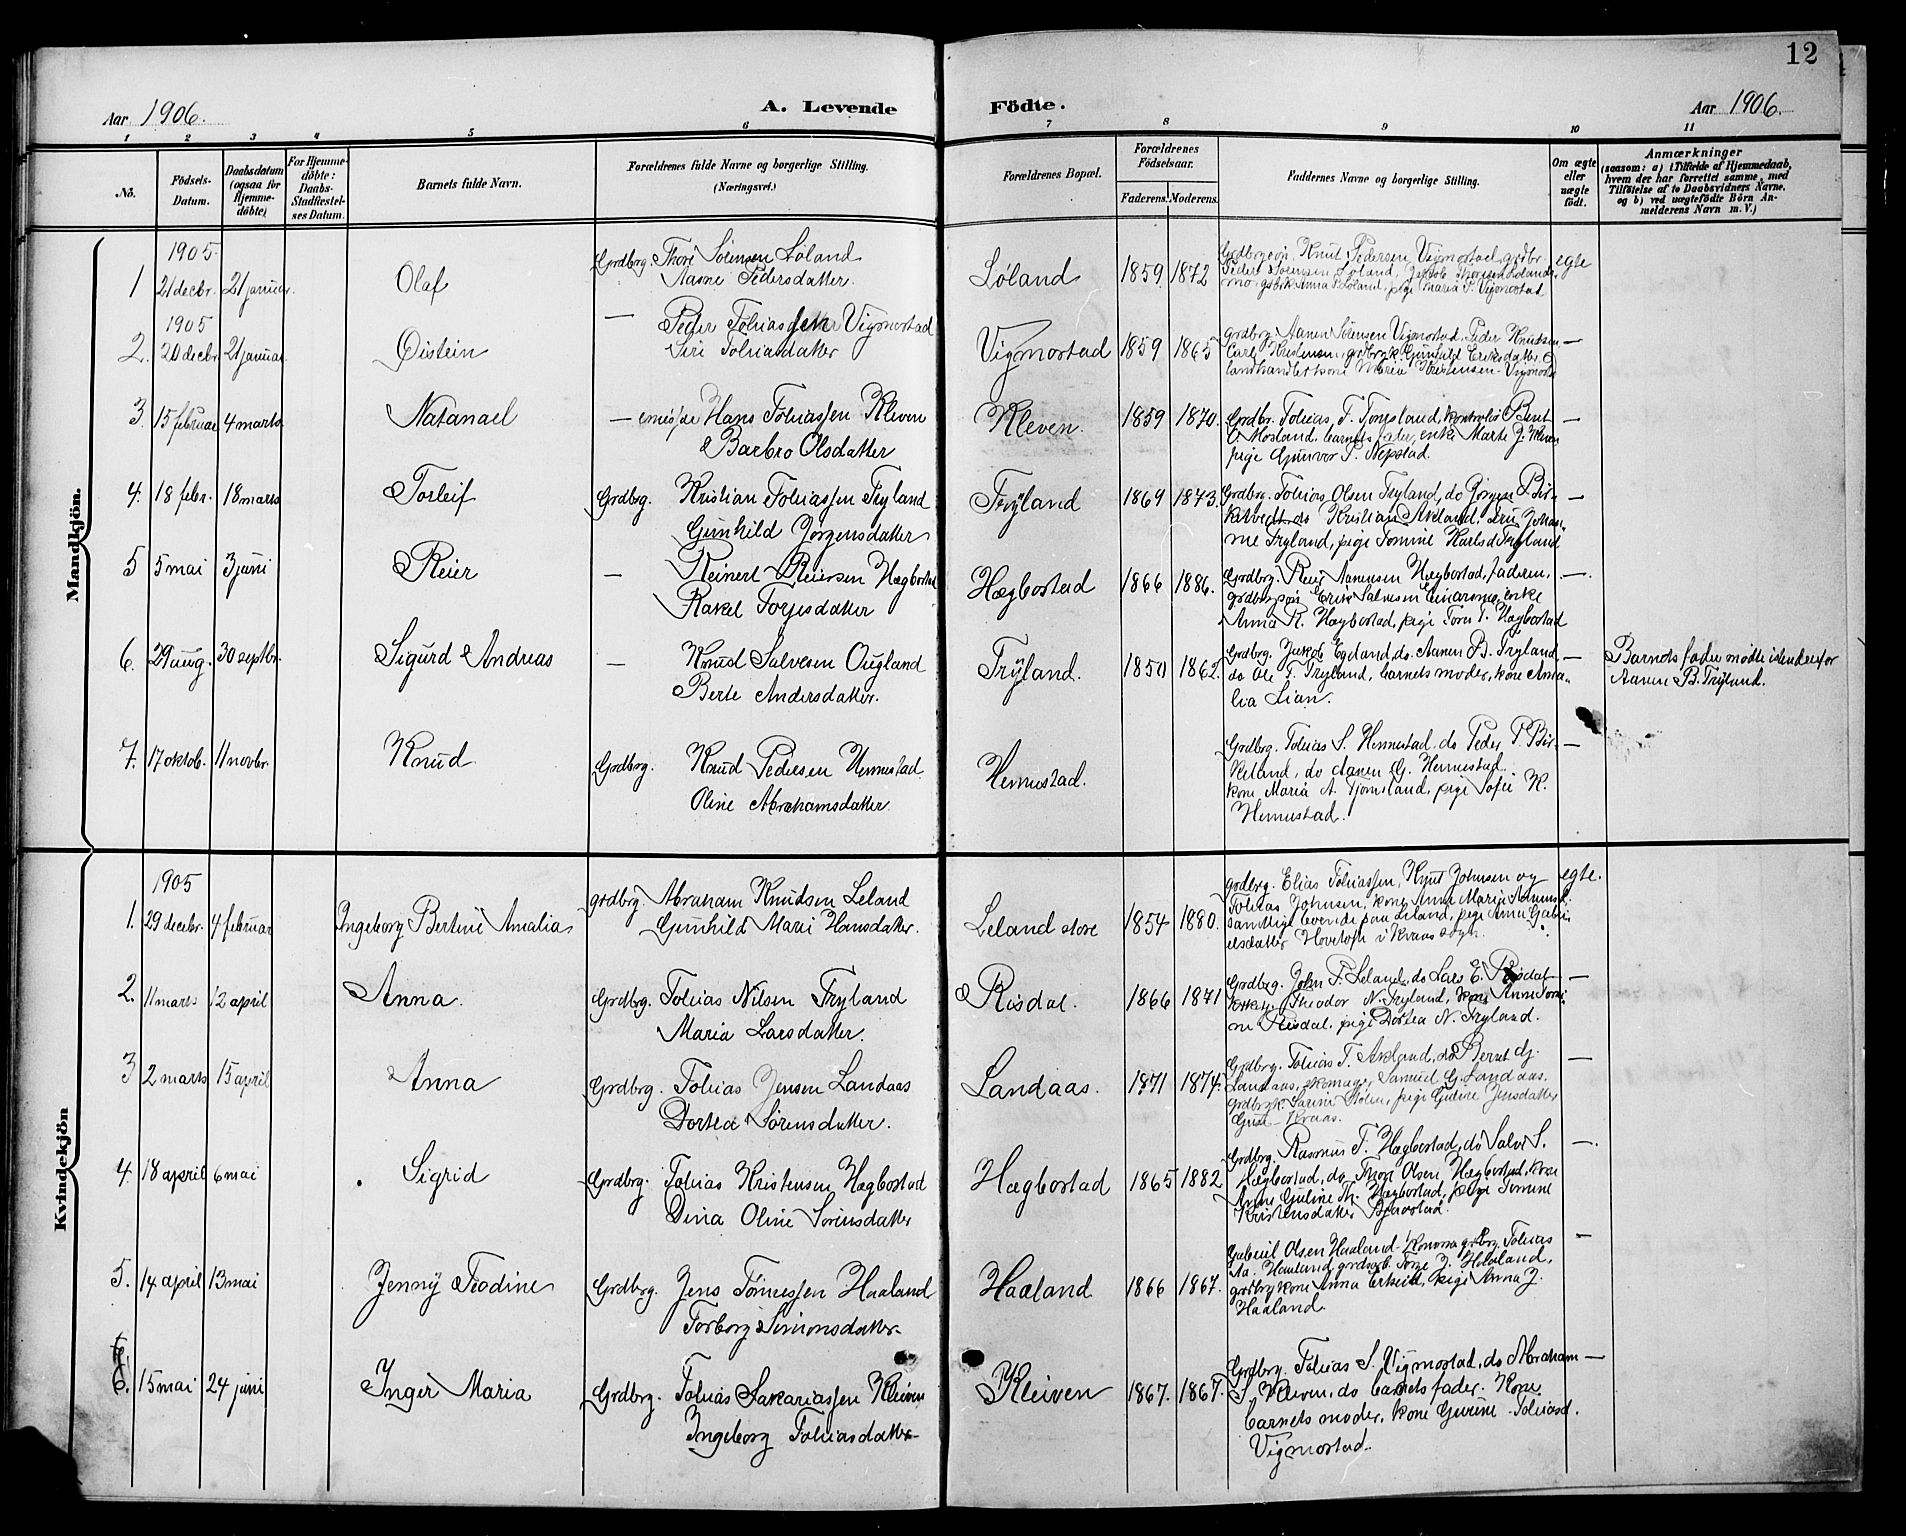 12
Aar 1906.
A. Levende
Födte.
Aar 1906.
1 2 3 4 5 6 7 8 9 10 11
No.
Födsels-
Datum.
Daabsdatum
(ogsaa for
Hjemme-
döbte)
For Hjemme-
döbte:
Daabs-
Stadfæstel-
ses Datum.
Barnets fulde Navn.
Forældrenes fulde Navne og borgerlige Stilling.
(Næringsvei.)
Forældrenes Bopæl.
Forældrenes
Födselsaar.
Faderens. Moderens.
Faddernes Navne og borgerlige Stilling.
Om ægte
eller
uægte
födt.
Anmærkninger
(saasom: a) i Tilfælde af Hjemmedaab,
hvem der har forrettet samme, med
Tilföielse af to Daabsvidners Navne.
og b) ved uægtefödte Börn An-
melderens Navn m. V.)
Mandkjön.
1905
1 21 decbr. 21 januar. Olaf
Grdbrg. Thore Sörensen Löland
Aasne Pedersdatter.
Löland 1859 1872
Grdbrgsön Knut Pedersen Vigmostad, grdbr.
Peder Sörensen Löland, Jakob Thorsen Löland,
Anna P. Löland, pige Maria P. Vigmostad
egte
1905
2. 20 decbr. 21 januar. Öistein
— Peder Tobiassen Vigmostad
Siri Tobiasdatter
Vigmostad 1859 1865
Grdbrg. Aanen Sörensen Vigmostad, Peder Knudsen
Carl Kristensen, grdbrgk. Gunhild Eriksdatter
landhandlerkone Maria Kristensen Vigmosta
—
3. 15 februar 4 marts Natanael
— Hans Tobiassen Kleven
Barbro Olsdatter
Kleven. 1859 1870.
Grdbr. Tobias T. Tongsland, Bent
O. Mosland, barnets fader, enke Marte J. Kleven
pige Gunvor T. Stepstad.
—
4. 18 febr. 18 marts Torleif
Grdbrg. Kristian Tobiassen Tryland
Gunhild Jörgensdatter
Tryland 1869 1873.
Grdbrg. Tobias Olsen Tryland, do Jörgen Bir-
ketvedt do Kristian Akland, fru Johan-
ne Tryland, pige Tomine Karlsd Tryland
—
5 5 mai 3 juni Reier
— Reinert Reiersen Hægbostad
Rakel Torjesdatter
Hægbostad 1866 1886.
Grdbrg. Reier Aanensen Hægbostad, faderen,
grdbrgsön Erik Salvesen enke
Anna R. Hægbostad, pige Tore T. Hægbostad
—
6. 29 aug. 30 septbr. Sigurd Andreas
— Knud Salvesen Ougland
Berte Andersdatter.
Tryland. 1850 1862.
Grdbrg. Jakob Egeland, do. Aanen B. Tryland,
do Ole T. Tryland, barnets moder, kone Ama-
lia Lian.
—
Barnets fader mödte istedenfor
Aanen B. Tryland.
7. 17 oktob. 11 novbr. Knud
Grdbrg. Knud Pedersen Hemestad
Oline Abrahamsdatter
Hemestad.
Grdbrg. Tobias S. Hemestad, do Peder P. Bir-
keland, do Aanen G. Hemestad
kone Maria A. Tjomsland, pige Sofie K.
Hemestad.
—
Kvindekjön
1905
1. 29 decbr. 4 februar Ingeborg Bertine Amalia
grdbrg. Abraham Knudsen Leland
Gunhild Marie Hansdatter.
Leland store 1854 1880.
grdbrg. Elias Tobiassen, Knut Johnsen og
Tobias Johnsen, kone Anne Marie
samtlige boende paa Leland, pige Anne Gabri-
elsdatter Hovetoft i Kvaas sogn.
egte.
2. 11 marts 12 april Anna.
Grdbrg. Tobias Nilsen Tryland
Maria Larsdatter.
Risdal. 1866 1871
Grdbrg. John P. Leland, do Lars E. Risdal
Theodor N. Tryland, kone Anne
ne Risdal, pige Dortea N. Tryland.
—
3 2 marts 15 april Anna
Grdbrg. Tobias Jensen Landaas
Dortea Sörensdatter.
Landaas. 1871 1874.
Grdbrg. Tobias T. Akland, do Bernt G.
Landaas, skomager Samuel G. Landaas.
grdbrgk. Sarine Stölen, pige Guline Jensdatter
Kvaas.
—
4. 18 april 6 mai Sigrid
Grdbrg. Tobias Kristensen Hægbostad
Dina Oline Sörensdatter
Hægbostad 1865 1882
Grdbrg. Rasmus T. Hægbostad, do Salve S.
Hægbostad, do Thore Olsen Hægbostad, kone
Anne Guline Th. Hægbostad, pige Tomine
Kristensdatter
—
5. 14 april 13 mai Jenny Teodine
Grdbrg. Jens Tönnessen Haaland
Torborg Simonsdatter
Haaland 1866 1867.
Gabriel Olsen Haaland Konsmo grdbrg. Tobias
Aa. Haaland, grdbrg. Torje J. Haaland,
grdbrgkone Anna pige Anna J.
Haaland.
—
6. 15 mai 24 juni Inger Maria
Grdbrg. Tobias Sakariassen Kleiven
Ingeborg Tobiasdatter
Kleiven 1867. 1867.
Grdbrg. Tobias S. Vigmostad, do Abraham
S. Kleven, do barnets fader. Kone
barnets moder, kone Gurine Tobiasd.
Vigmostad.
—